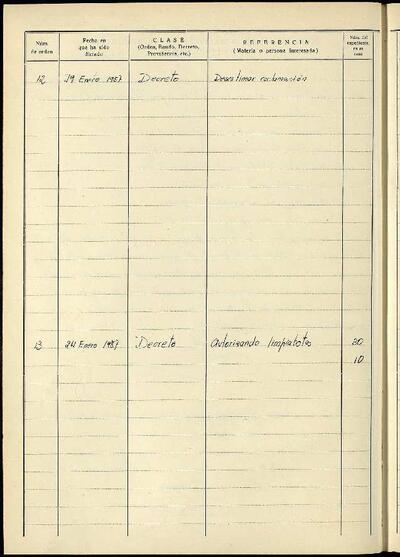 Núm. de orden
Fecha en que ha sido dictado
CLASE
(Orden, Bando, Decreto, Providencia, etc.)
REFERENCIA
(Materia o persona interesada)
Núm. del expediente en su caso
12 19 Enero 1957 Decreto Desestimar reclamación
13 24 Enero 1957 Decreto Autorizando limpiabotas 30
10